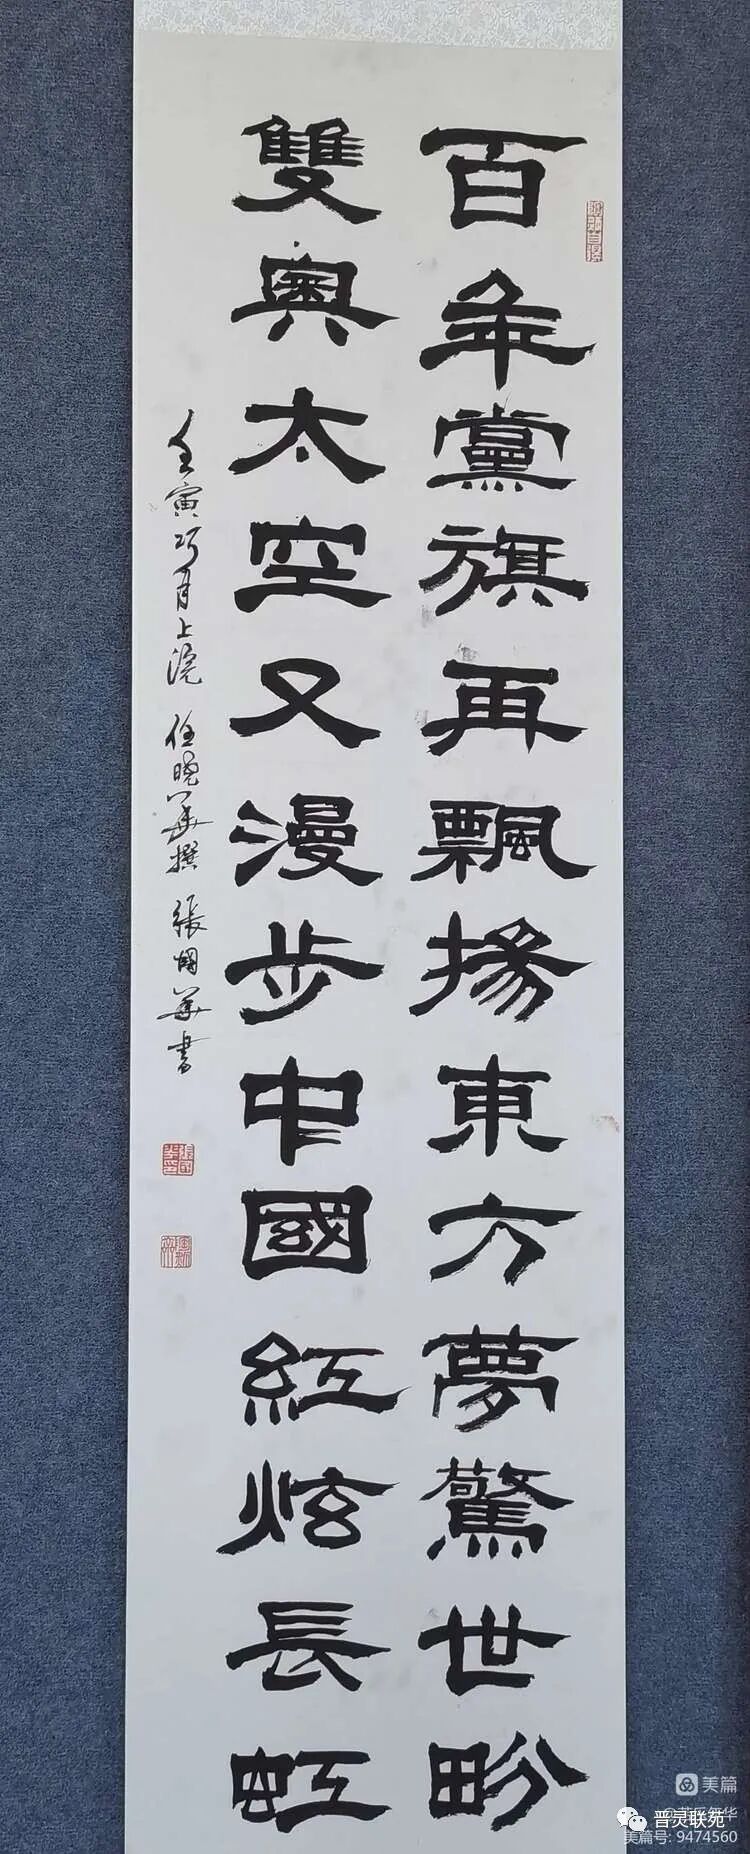 百年黨旗再飄揚東方夢驚世畍
雙奧太空又漫步中國紅炫長虹
壬寅巧月上浣 任曉華撰 張國華書
美篇
晋灵联苑
美篇号: 9474560